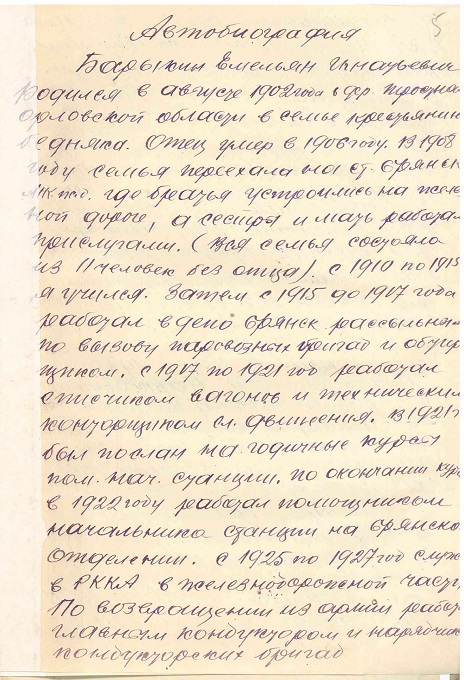 5
Автобиография
Барыкин Емельян Игнатьевич
родился в августе 1902 года в дер.
орловской области в семье крестьянин
бедняка. Отец умер в 1906 году. В 1908
году семья переехала на ст. Брянск
где братья устроились на желез
ной дороге, а сестра и мать работал
прислугами. (Вся семья состояла
из 11 человек без отца). с 1910 по 1915
я учился. Затем с 1915 до 1917 года
работал в депо Брянск рассыльным
по вызову паровозных бригад и
щиком. с 1917 по 1921 год работал
списчиком вагонов и техническим
конторщиком сл. движения. В 1921 г
был послан на годичные курсы
пом. нач. станции. по окончании кур
в 1922 году работал помощником
начальника станции на Брянско
отделении. с 1925 по 1927 год служ
в РККА в железнодорожной част
По возвращении из армии работ
главным кондуктором и нарядчик
кондукторских бригад